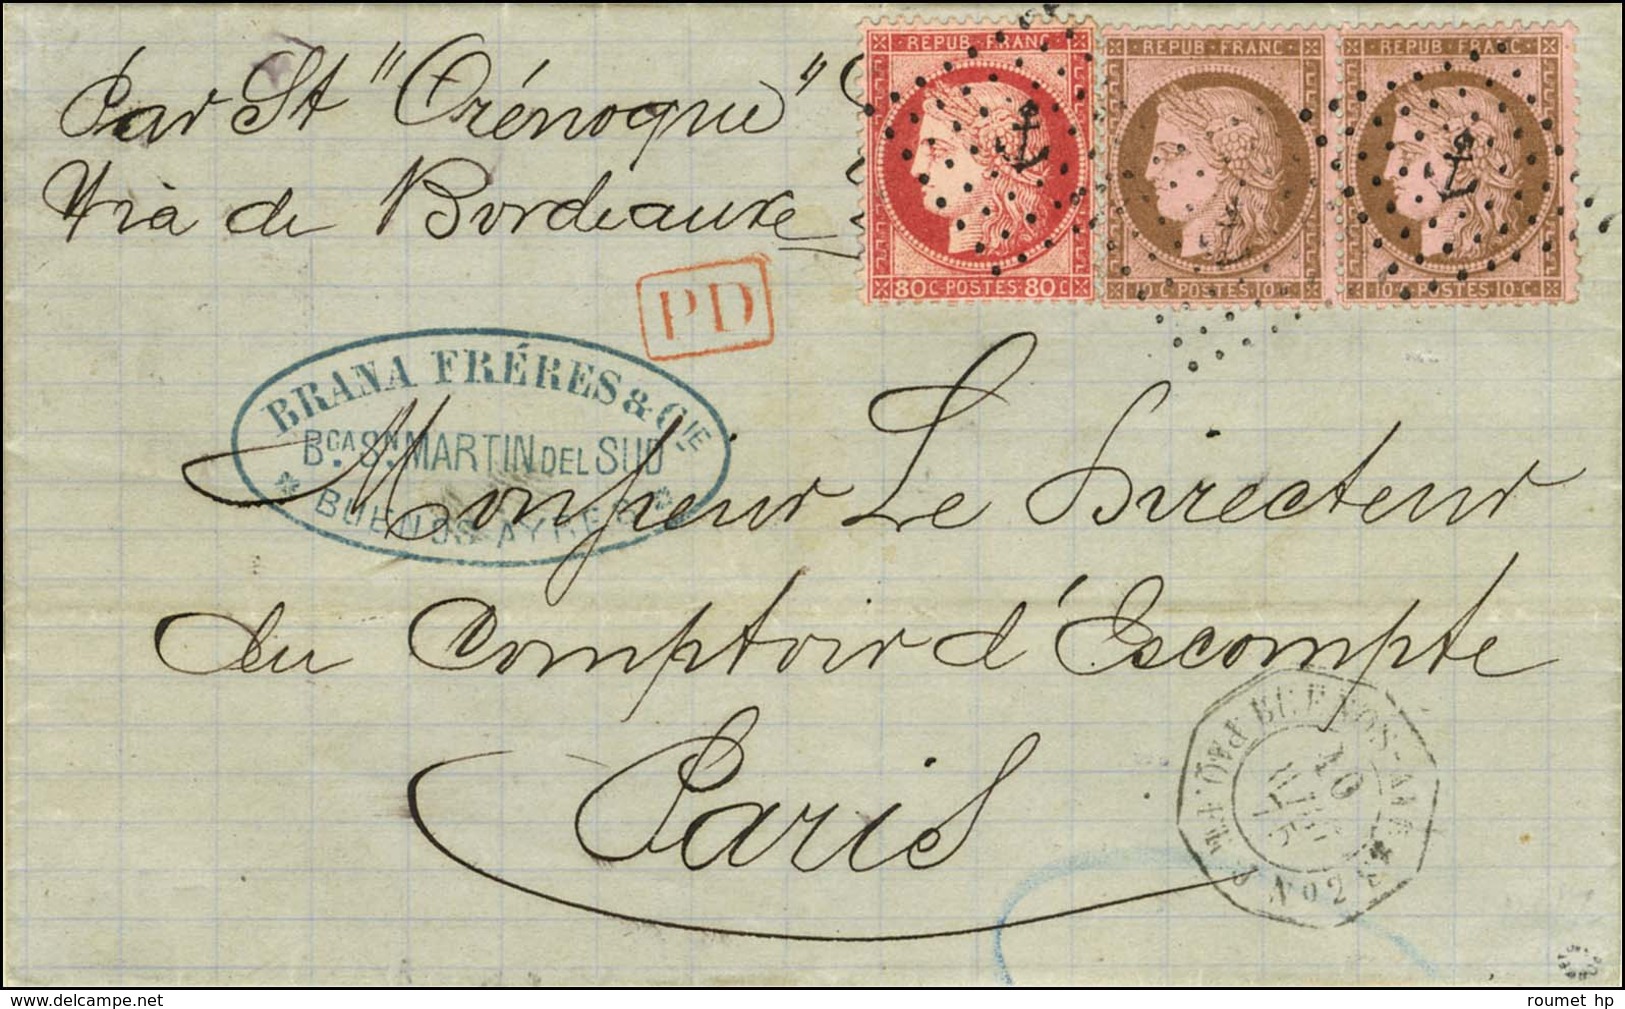 Par St "Orénoque"
Via de Bordeaux
REPUB·FRANC
80 C·POSTES·80 C
REPUB·FRANC
10 C·POSTES·10 C
REPUB·FRANC
10 C·POSTES·10 C
PD
BRANA FRÉRES & CIE
BCA. SN. MARTIN DEL SUD
* BUENOS AYRES *
Monsieur Le Directeur
du Comptoir d'Escompte
Paris
BUENOS-AIRES *
PAQ. FR. J No 2
10
75
roumet hp